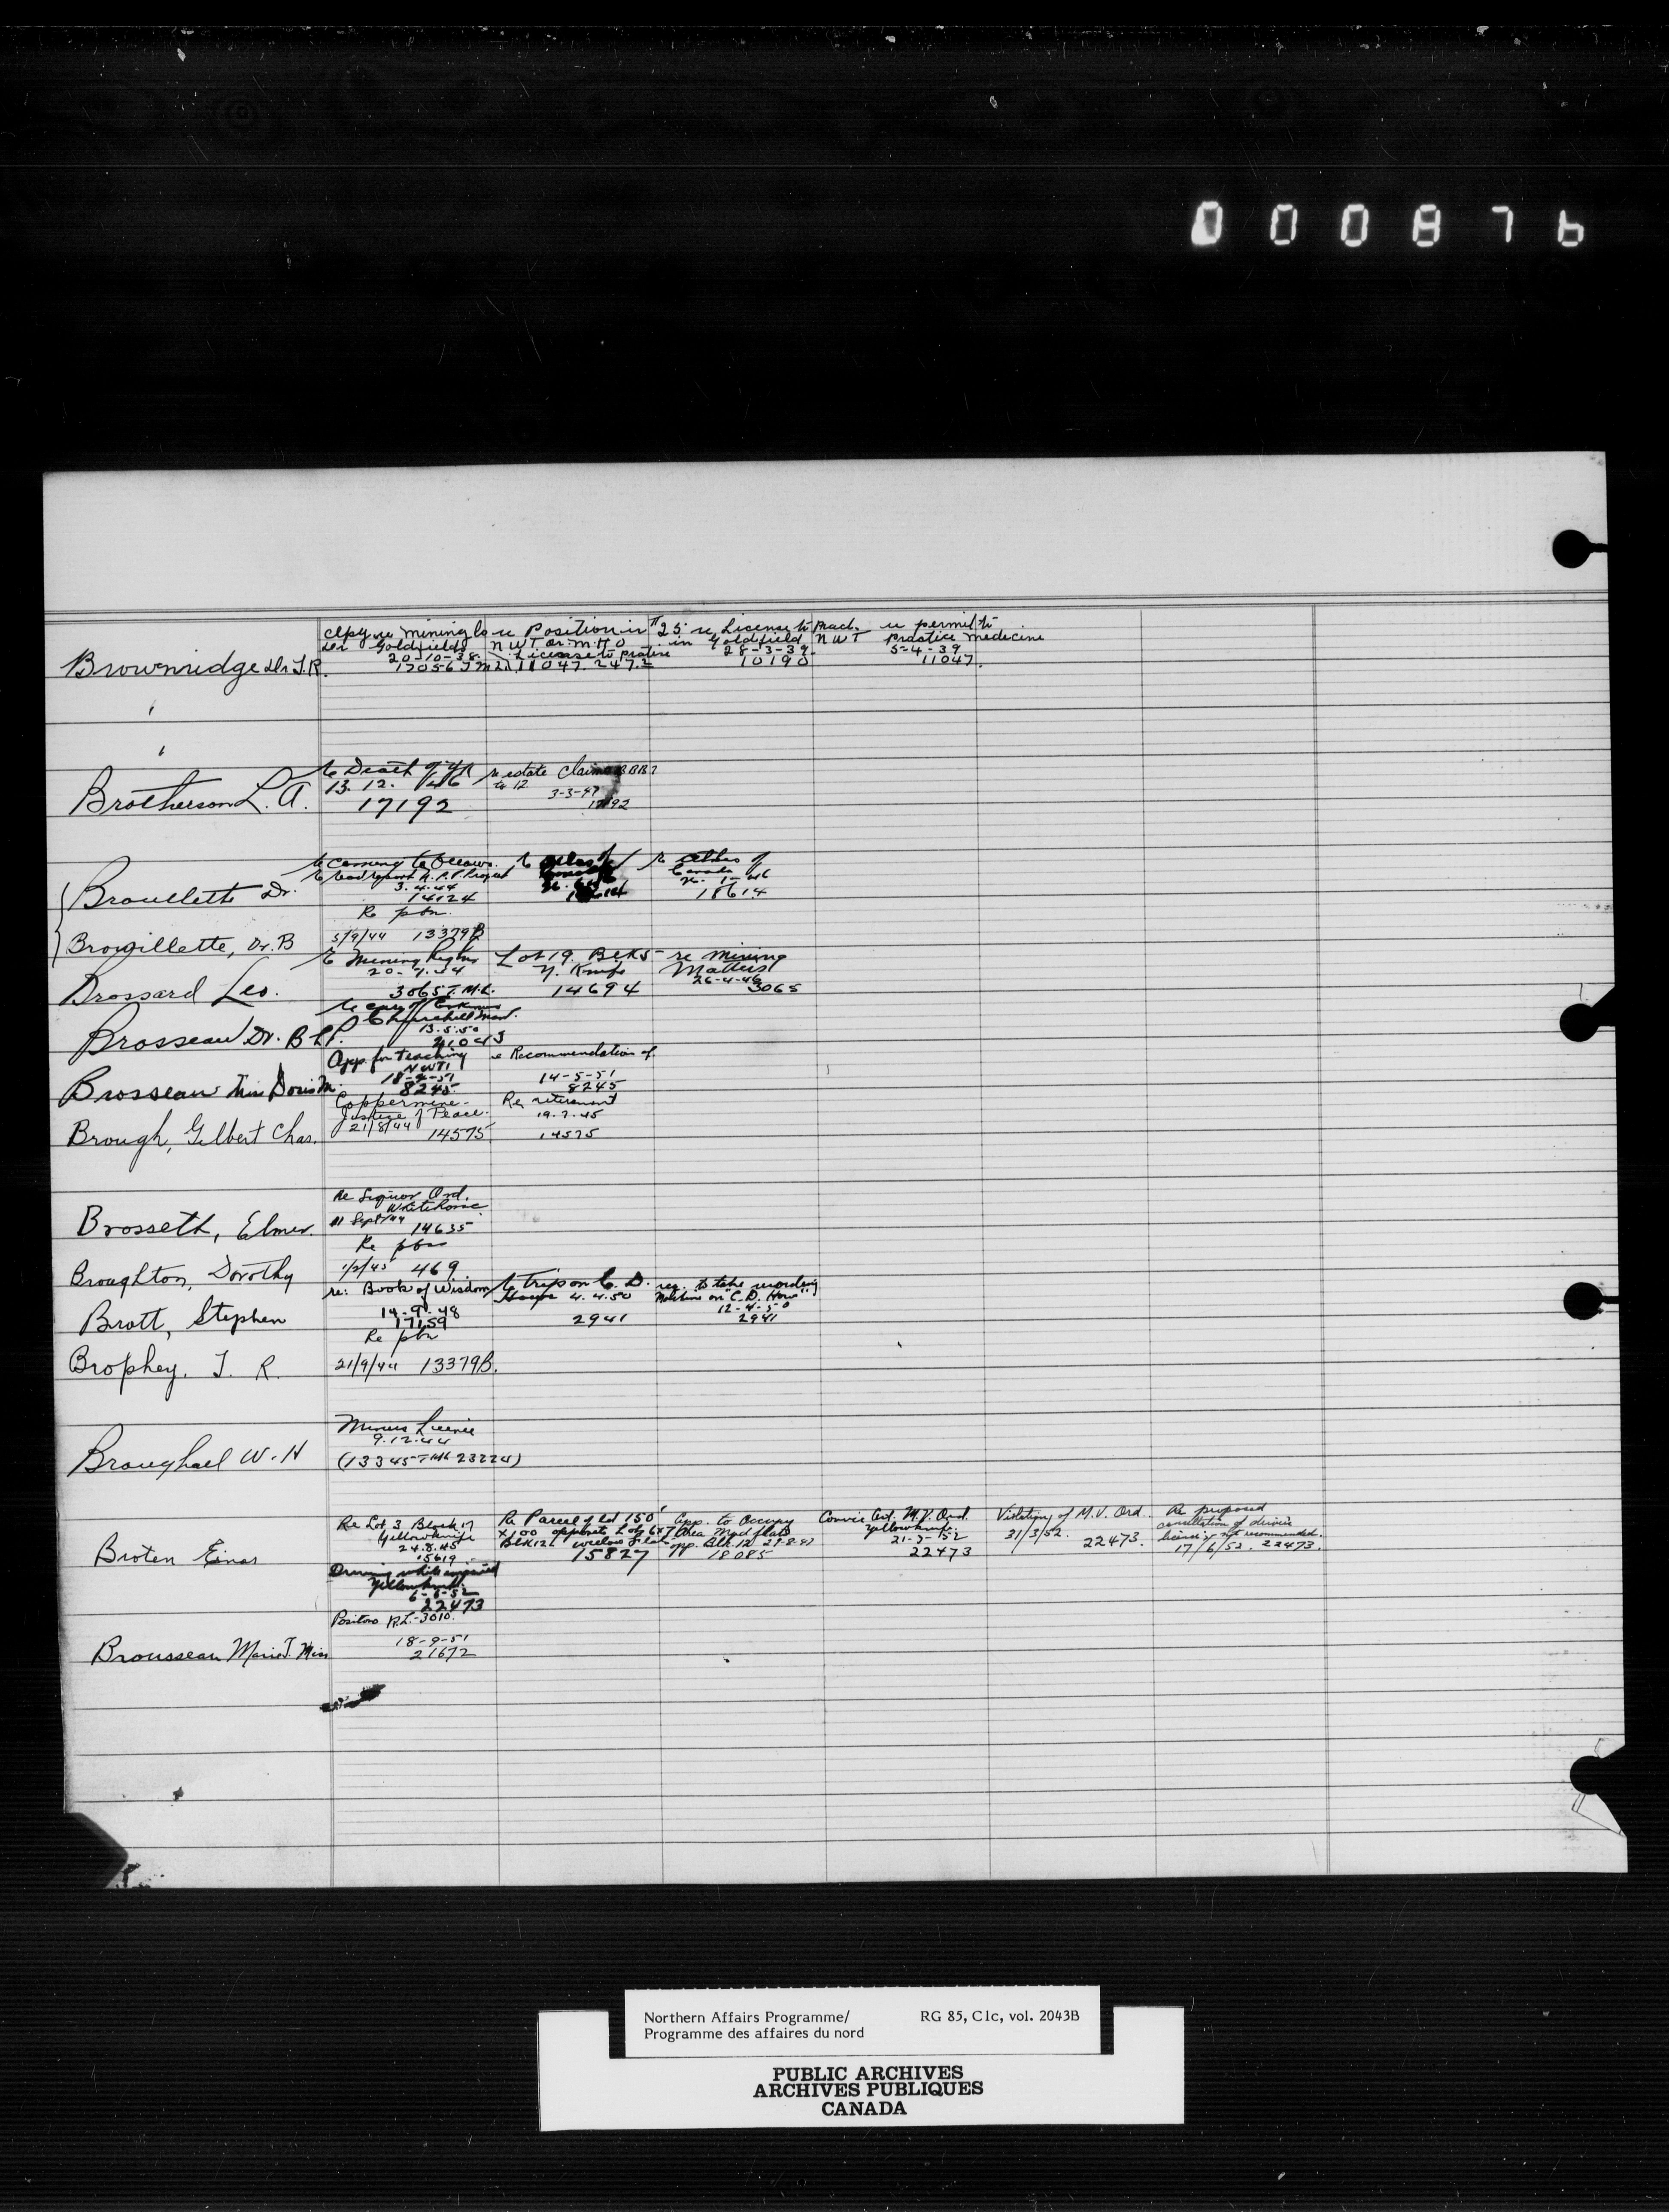 000876
re Position in
re License to Pract.
re permit to
Goldfields
NWT or M H O
in Goldfield NWT
practice medicine
20-10-38
License to
28-3-39
5-4-39
Brownridge Dr. J.R.
11047
10190
11047
re Death of
re estate claims
13. 12. 46
to 12
3-3-47
Brotherson L. A.
17192
17192
3.4.44
Canada
Brouillette Dr.
14124
18614
Re pbn
Brouillette, Dr. B
5/9/44 13379B
re Mining Rights
Lot 19. Blk 5
re Mining
Y. Knife
Matters
26-4-46
Brossard Leo.
3065 T.M.L.
14694
3065
Churchill
13.5.50
Brosseau Dr. B
21043
App. for teaching
re Recommendation of
NWT
14-5-51
Brosseau Miss Doris M.
8245
8245
Coppermine
Re retirement
Justice of Peace
19.7.45
21/8/44
Brough, Gilbert Chas.
14575
14575
Re Liquor Ord.
Whitehorse
11 Sept/44
Brosseth, Elmer.
14635
Re pbn
Broughton, Dorothy
1/2/45 469
re: Book of Wisdom
re trip on C. D.
req. to take
Howe 4.4.50
on "C. D. Howe"
14-9-48
12-4-50
Brott, Stephen
17159
2941
2941
Re pbn
Brophey, J. R.
21/9/44 13379B.
Miners Licence
9.12.44
Broughael W. H
(13345 TML 23224)
Re Lot 3 Block 17
Re Parcel of Lot 150'
App. to Occupy
Convic Ord. M.V. Ord.
Violation of M.V. Ord.
Re proposed
Yellowknife
x 100 opposite Lot 6 & 7
Area Mud flats
Yellowknife
31/3/52.
cancellation of drivers
24.8.45
Blk 12 willow flat
opp. Blk. 12
21-3-52
license not recommended.
Broten Einar
15619
15827
18085
22473
22473.
17/6/52. 22473.
Driving while impaired
Yellowknife
6-6-52
22473
Position R.L.-3010.
18-9-51
Brousseau Marie T. Miss
21672
Northern Affairs Programme/
RG 85, C1c, vol. 2043B
Programme des affaires du nord
PUBLIC ARCHIVES
ARCHIVES PUBLIQUES
CANADA